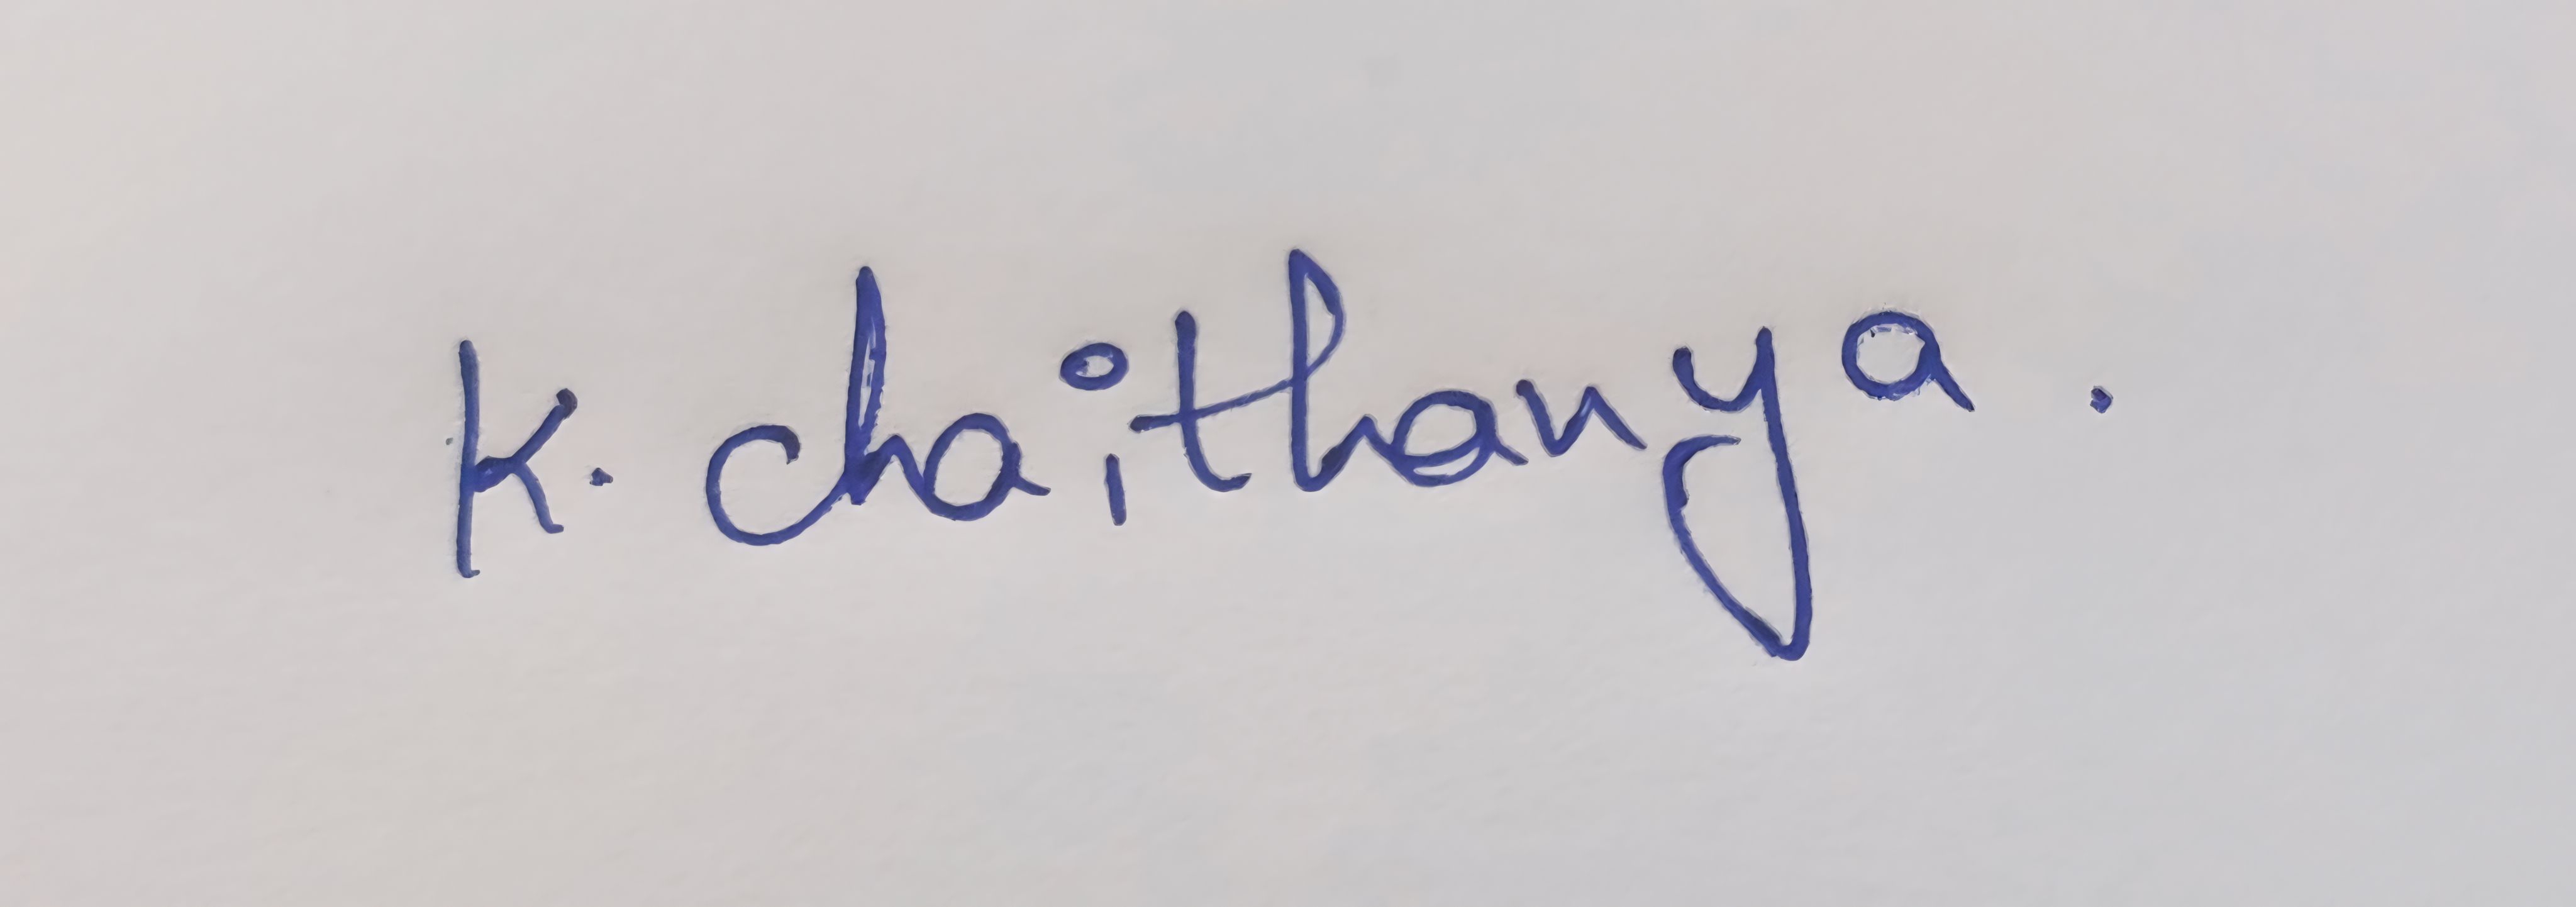 K. chaithanya.